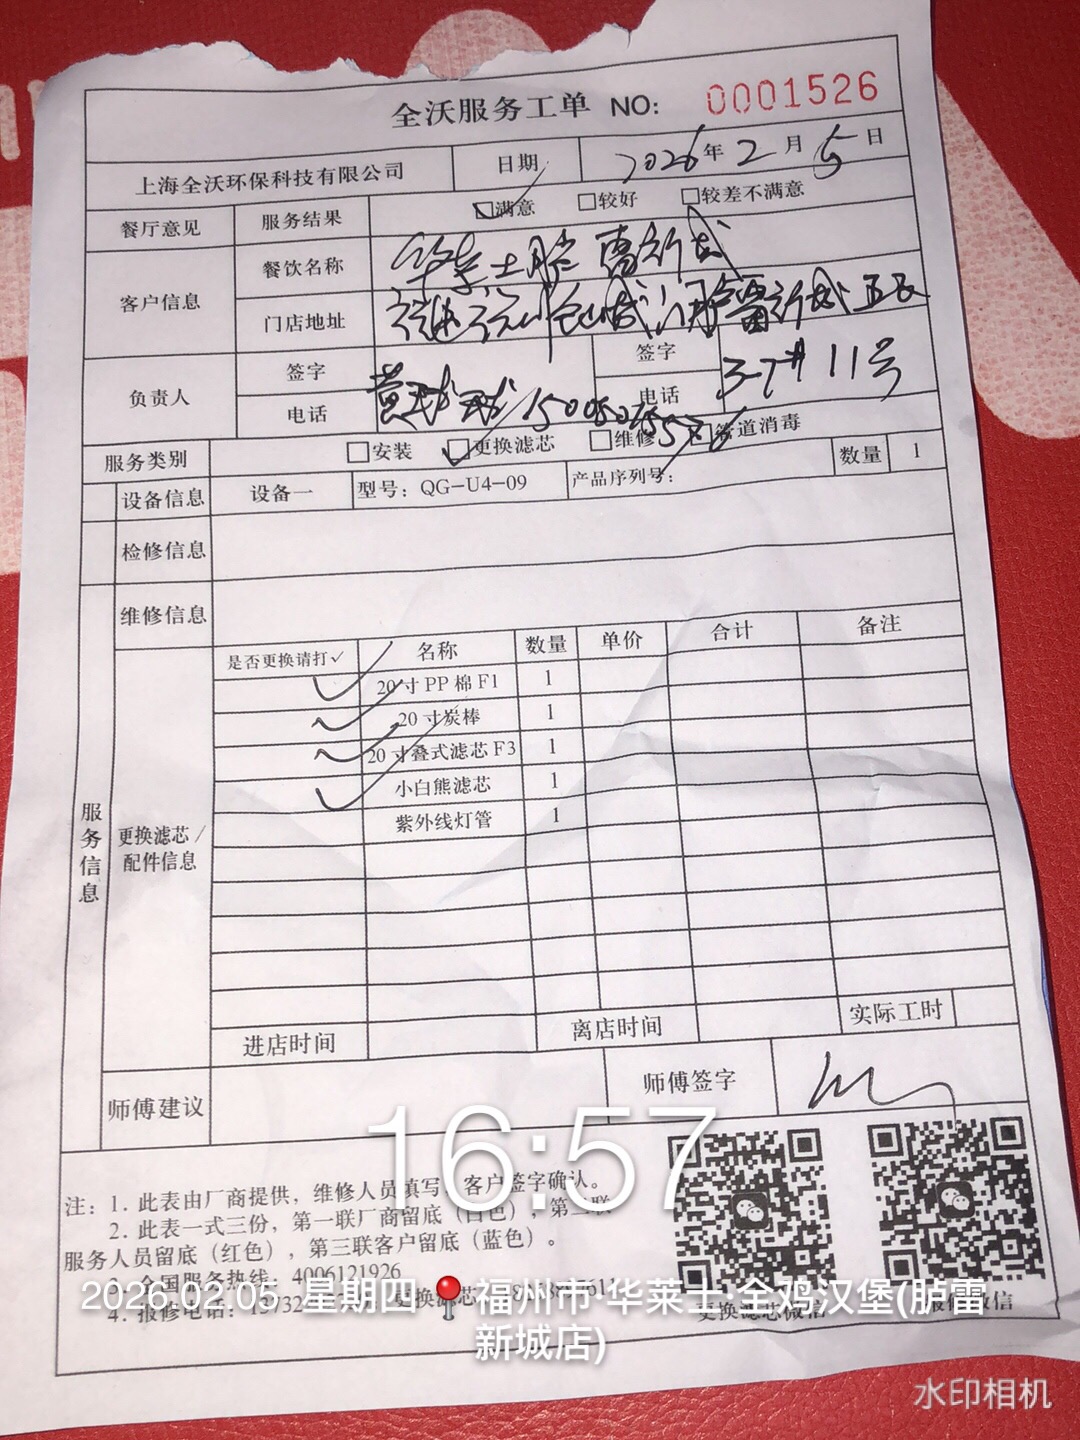 全沃服务工单 NO: 0001526
上海全沃环保科技有限公司 日期 2026年2月5日
餐厅意见 服务结果 满意 较好 较差不满意
客户信息 餐饮名称 华莱士胪雷新城
门店地址 福建福州仓山城门胪雷新城五区
3-7# 11号
负责人 签字 签字
电话 电话
服务类别 安装 更换滤芯 维修 管道消毒
设备信息 设备一 型号: QG-U4-09 产品序列号: 数量 1
检修信息
维修信息
服务信息
更换滤芯/配件信息
是否更换请打✓ 名称 数量 单价 合计 备注
✓ 20寸PP棉F1 1
✓ 20寸炭棒 1
✓ 20寸叠式滤芯F3 1
✓ 小白熊滤芯 1
紫外线灯管 1
进店时间 离店时间 实际工时
师傅建议 师傅签字
16:57
注: 1. 此表由厂商提供, 维修人员填写, 客户签字确认。
2. 此表一式三份, 第一联厂商留底(白色), 第二联
服务人员留底(红色), 第三联客户留底(蓝色)。
3. 全国服务热线: 4006121926
4. 报修电话:
更换滤芯微信 报修微信
2026.02.05 星期四 福州市·华莱士·全鸡汉堡(胪雷
新城店)
水印相机